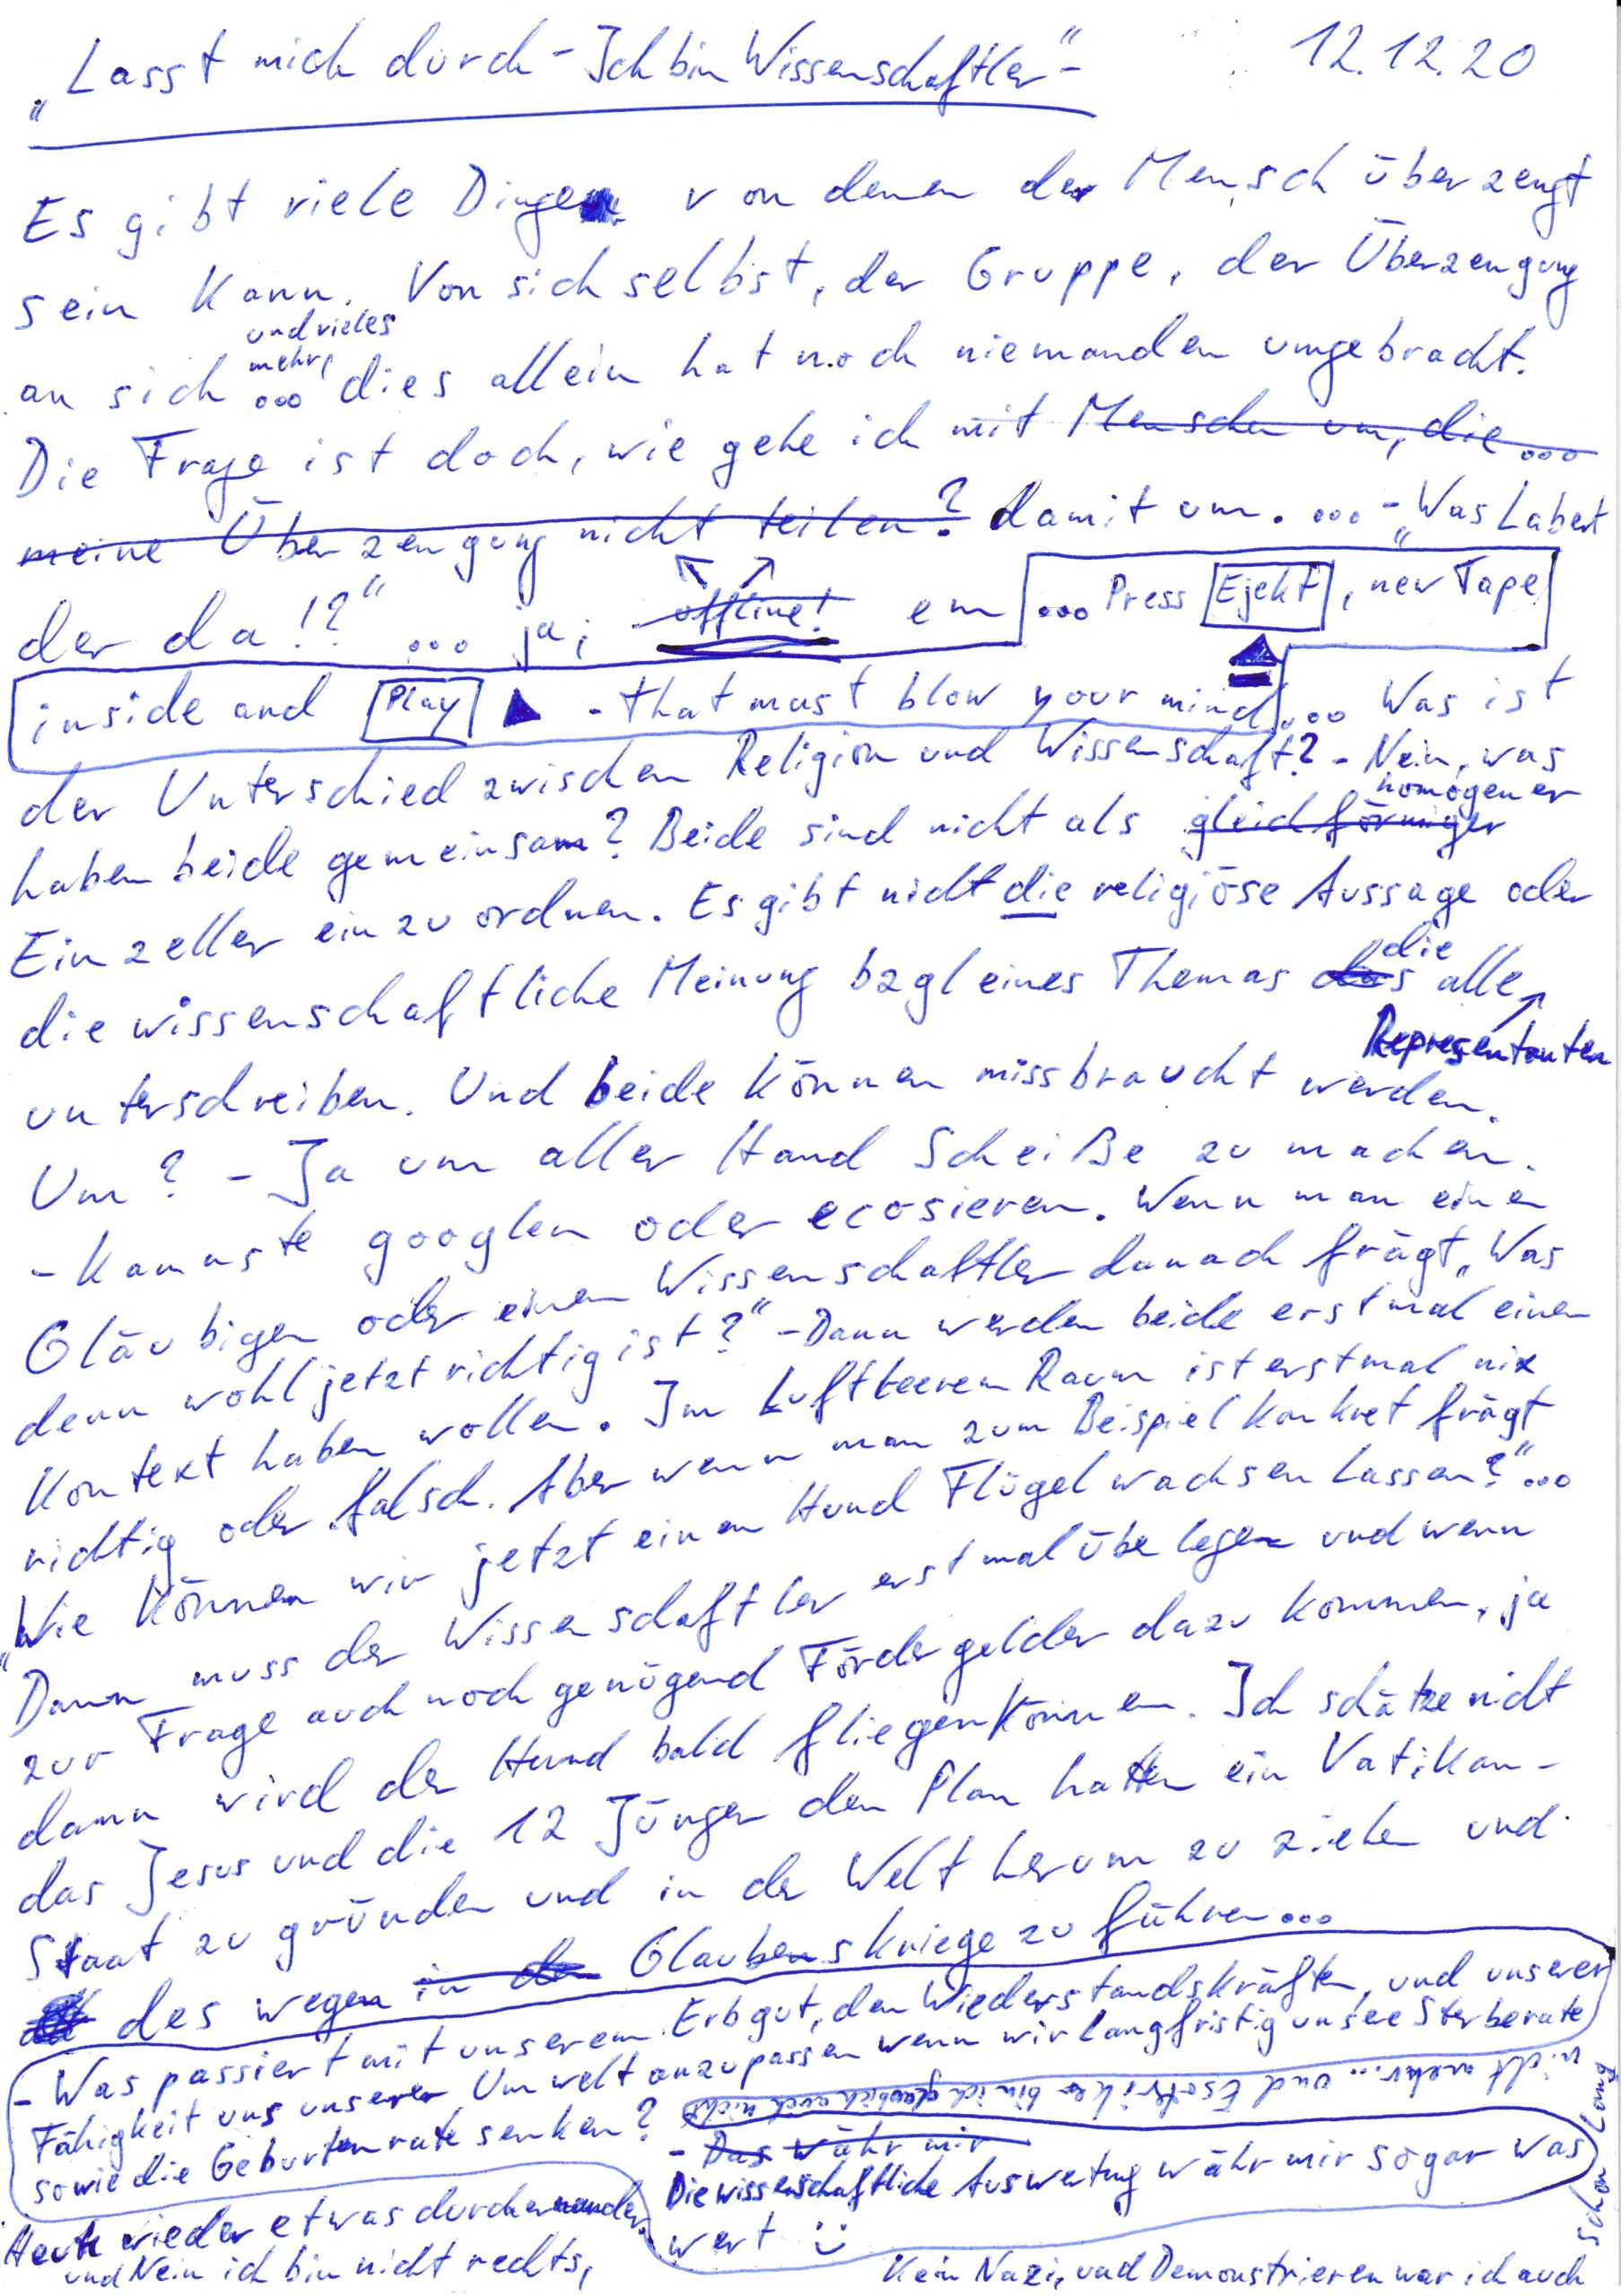 „Lasst mich durch - Ich bin Wissenschaftler“-
12.12.20
Es gibt viele Dinge von denen der Mensch überzeugt
sein kann. Von sich selbst, der Gruppe, der Überzeugung
und vieles
mehr,
an sich ... dies allein hat noch niemanden umgebracht.
Die Frage ist doch, wie gehe ich mit Menschen um, die ...
meine Überzeugung nicht teilen? damit um. ... - „Was labert
der da!?“ ... ja; offline! em ... Press Ejekt, new Tape
inside and Play - that must blow your mind ... Was ist
der Unterschied zwischen Religion und Wissenschaft? - Nein, was
homogener
haben beide gemeinsam? Beide sind nicht als gleichförmiger
Einzeller einzuordnen. Es gibt nicht die religiöse Aussage oder
die
die wissenschaftliche Meinung bzgl eines Themas das alle
Representanten
unterschreiben. Und beide können missbraucht werden.
Um? - Ja um aller Hand Scheiße zu machen.
- Kannste googlen oder ecosieren. Wenn man einen
Gläubigen oder einen Wissenschaftler danach frägt „Was
denn wohl jetzt richtig ist?“ - Dann werden beide erstmal einen
Kontext haben wollen. Im Luftleeren Raum ist erstmal nix
richtig oder falsch. Aber wenn man zum Beispiel konkret frägt
„Wie können wir jetzt einem Hund Flügel wachsen lassen?“...
Dann muss der Wissenschaftler erstmal übelegen und wenn
zur Frage auch noch genügend Fördergelder dazu kommen, ja
dann wird der Hund bald fliegen können. Ich schätze nicht
das Jesus und die 12 Jünger den Plan hatten ein Vatikan-
Staat zu gründen und in der Welt herum zu ziehen und
des wegen in den Glaubenskriege zu führen...
- Was passiert mit unserem Erbgut, den Wiederstandskräften, und unserer
Fähigkeit uns unserer Umwelt anzupassen wenn wir langfristig unsere Sterberate
sowie die Geburtenrate senken?
- Das währ mir
Die wissenschaftliche Auswertung währ mir sogar was
wert
Heute wieder etwas durcheinander.
und Nein ich bin nicht rechts,
kein Nazi, und Demonstrieren war ich auch
schon lang
nicht mehr... und Esotriker bin ich glaubich auch nicht